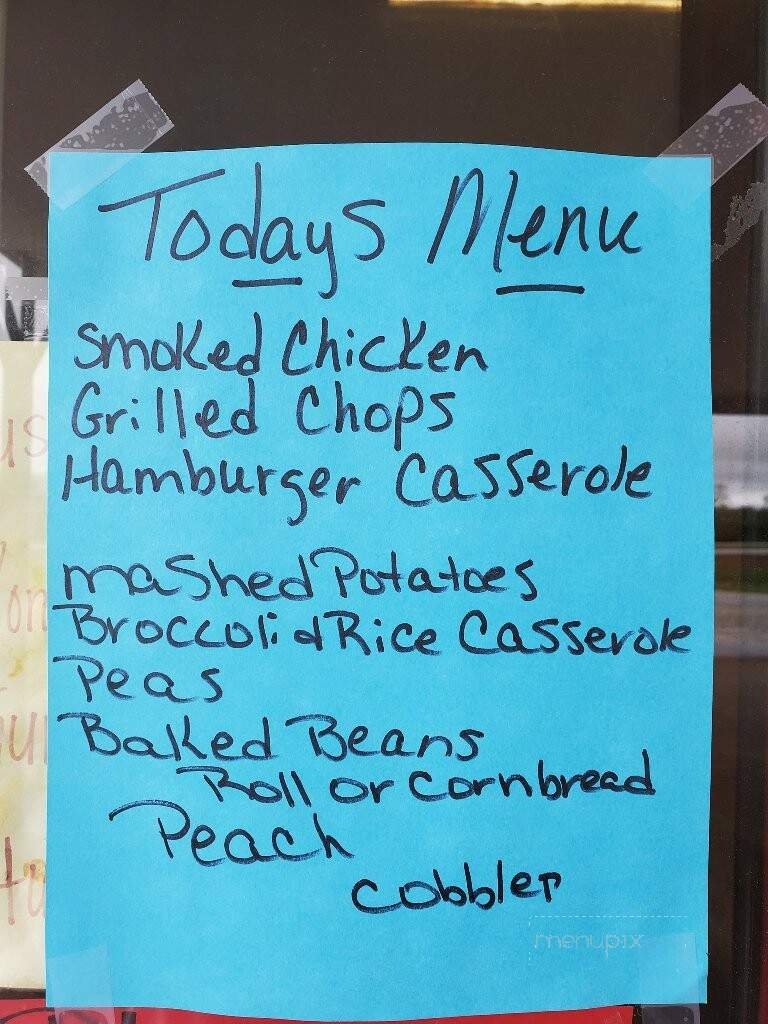 Todays Menu
Smoked Chicken
Grilled Chops
Hamburger Casserole
mashed Potatoes
Broccoli & Rice Casserole
Peas
Baked Beans
Roll or Cornbread
Peach
cobbler
menupix